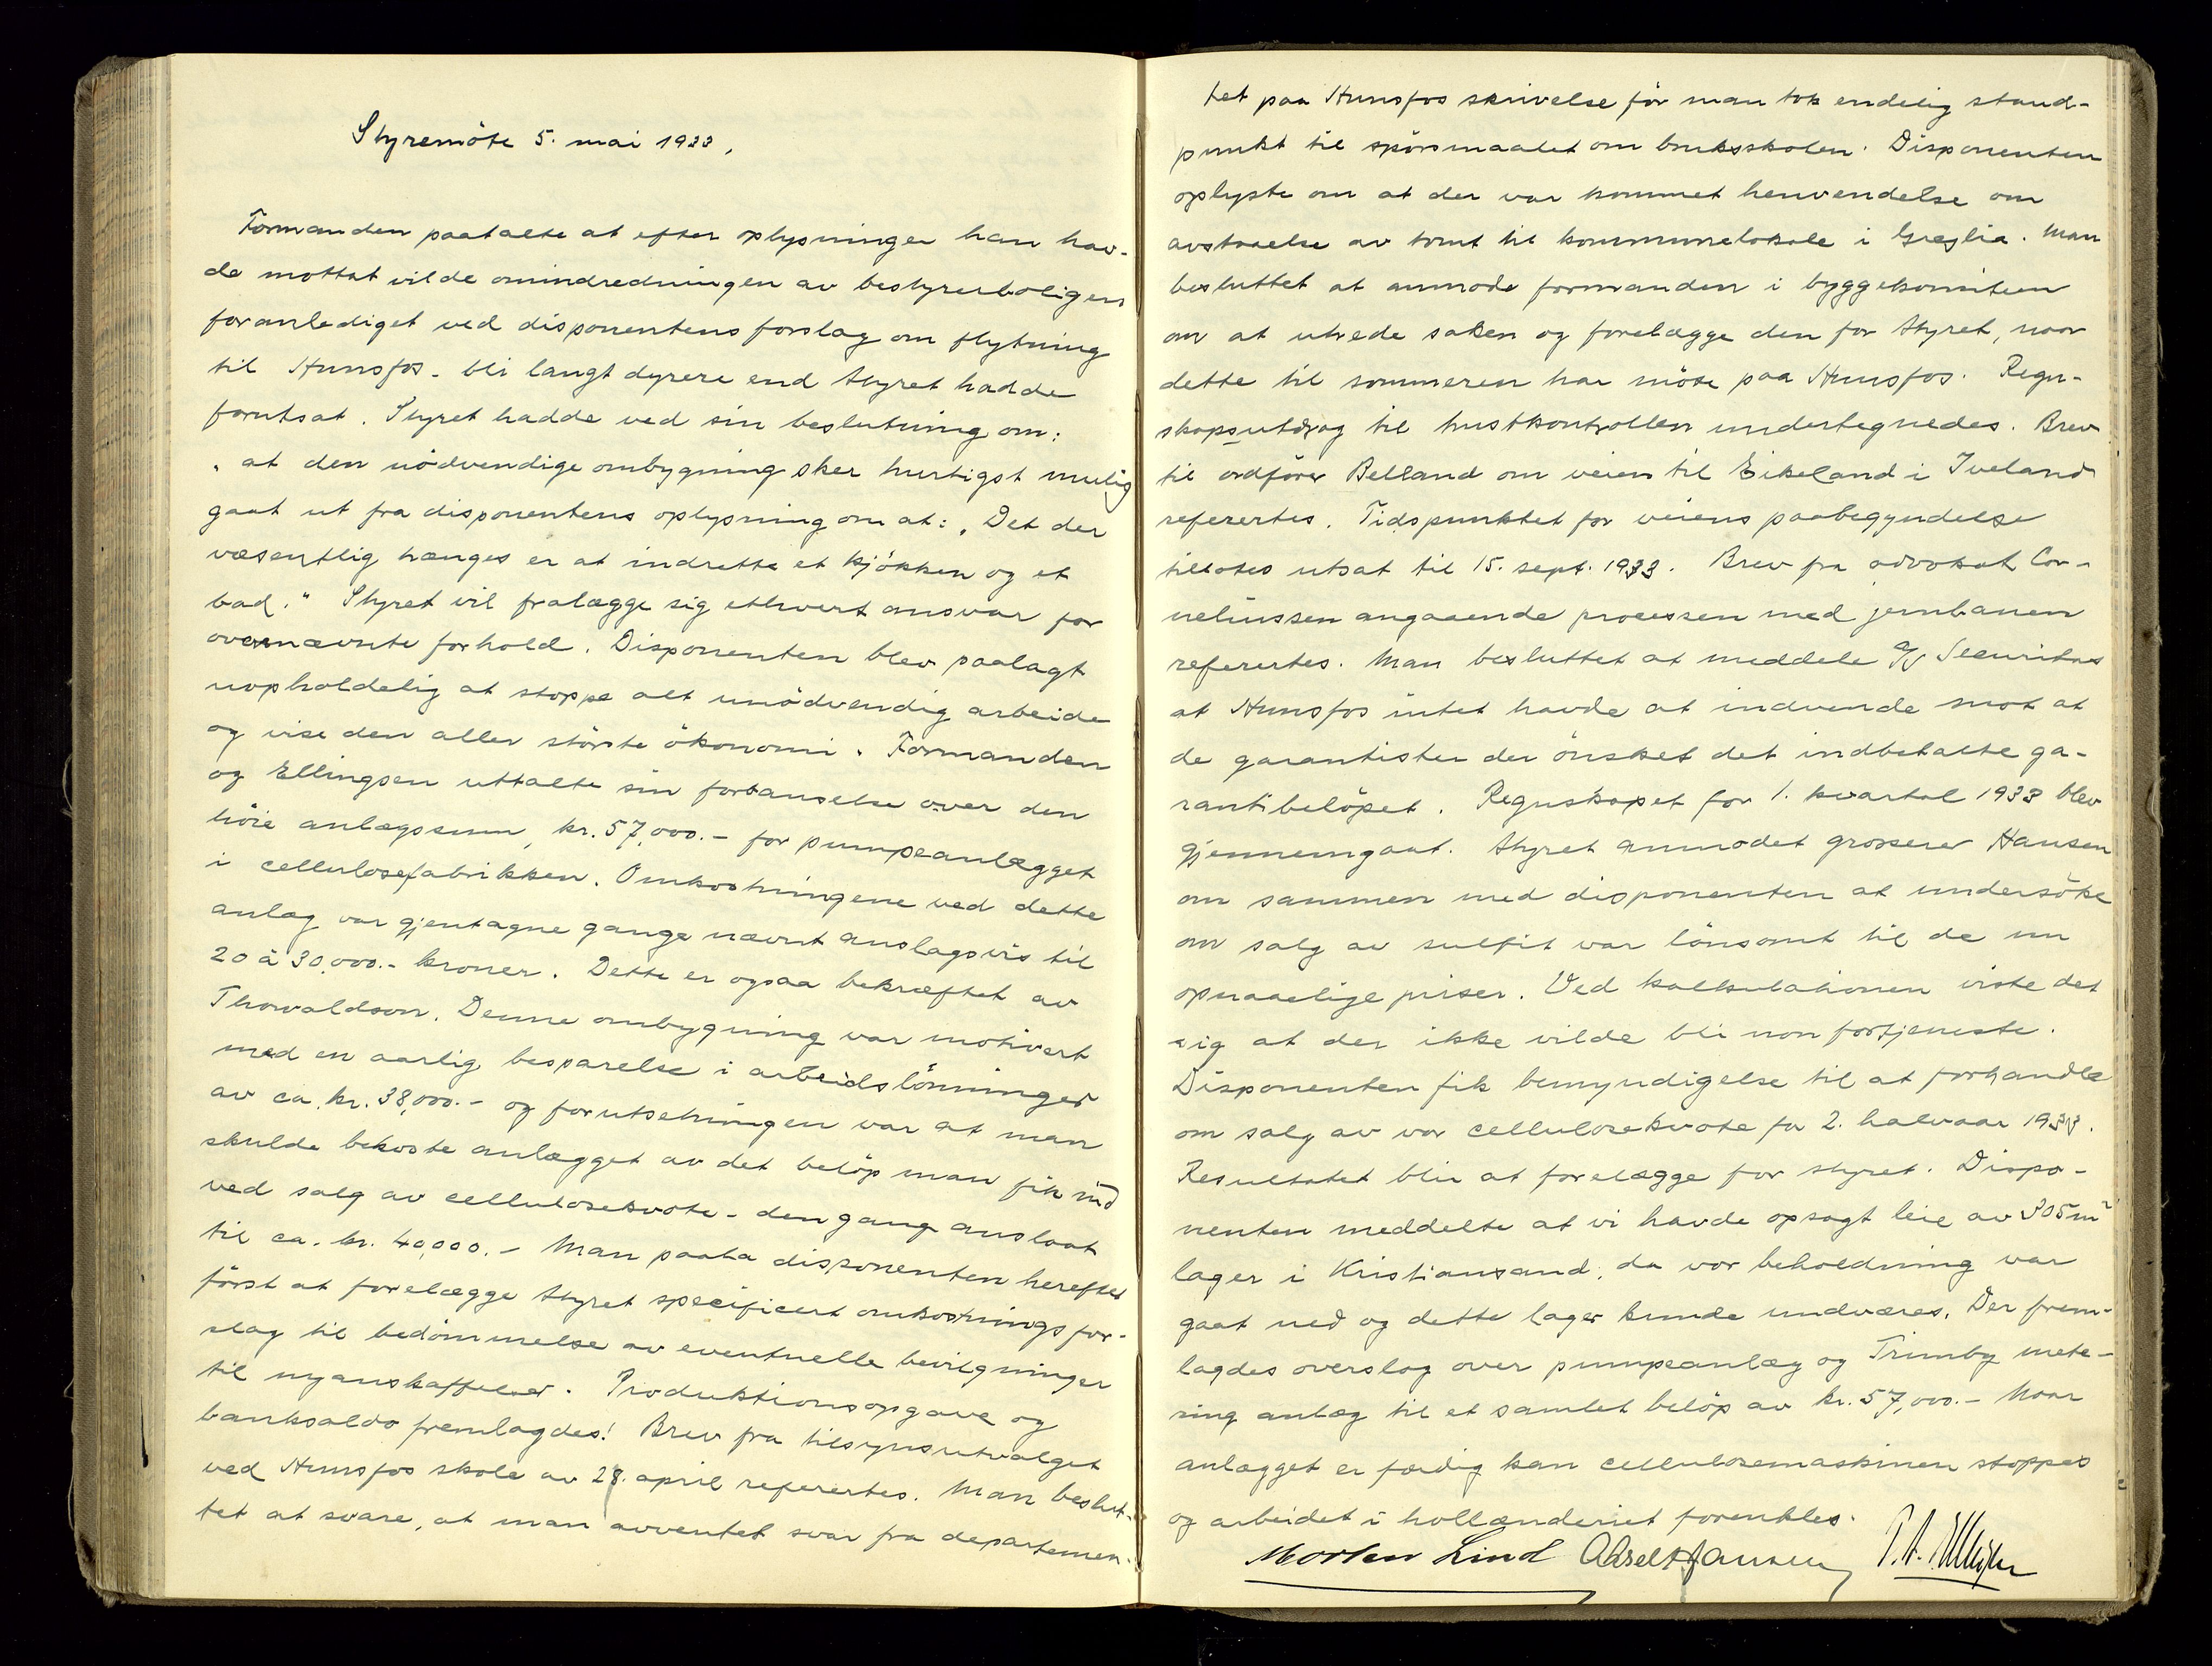 Styremöte 5. mai 1933.
Formanden paatalte at efter oplysninger han hav-
de mottat vilde omindredningen av bestyrerboligen
foranlediget ved disponentens forslag om flytning
til Hunsfos - bli langt dyrere end styret hadde
forutsat. Styret hadde ved sin beslutning om:
"at den nödvendige ombygning sker hurtigst mulig
gaat ut fra disponentens oplysning om at: "Det der
væsentlig trænges er at indrette et kjökken og et
bad." Styret vil fralægge sig ethvert ansvar for
overnævnte forhold. Disponenten blev paalagt
uopholdelig at stoppe alt unödvendig arbeide
og vise den aller störste ökonomi. Formanden
og Ellingsen uttalte sin forbauselse over den
höie anlægssum, kr. 57,000.- for pumpeanlægget
i cellulosefabrikken. Omkostningene ved dette
anlæg var gjentagne gange nævnt anslagsvis til
20 à 30,000.- kroner. Dette er ogsaa bekræftet av
Thorvaldson. Denne ombygning var motivert
med en aarlig besparelse i arbeidslönninger
av ca. kr. 38,000.- og forutsetningen var at man
skulde bekoste anlægget av det belöp man fik ind
ved salg av cellulosekvote - den gang anslaat
til ca. kr. 40,000.- Man paala disponenten herefter
först at forelægge styret specificert omkostningsfor-
slag til bedömmelse av eventuelle bevilgninger
til nyanskaffelser. Produktionsopgave og
banksaldo fremlagdes! Brev fra tilsynsutvalget
ved Hunsfos skole av 28. april refereertes. Man beslut-
tet at svare, at man avventet svar fra departemen-
tet paa Hunsfos skrivelse för man tok endelig stand-
punkt til spörsmaalet om bruksskolen. Disponenten
oplyste om at der var kommet henvendelse om
avstaaelse av tomt til kommunelokale i Græslia. Man
besluttet at anmode formanden i byggekomiteen
om at utrede saken og forelægge den for styret, naar
dette til sommeren har möte paa Hunsfos. Regn-
skapsutdrag til trustkontrollen undertegnedes. Brev
til ordförer Belland om veien til Eikeland i Iveland
referertes. Tidspunktet for veiens paabegyndelse
tillotes utsat til 15. sept. 1933. Brev fra advokat Cor-
neliussen angaaende processen med jernbanen
referertes. Man besluttet at meddele A/S Securitas
at Hunsfos intet havde at indvende mot at
de garantister der önsket det indbetalte ga-
rantibelöpet. Regnskapet for 1. kvartal 1933 blev
gjennemgaat. Styret anmodet grosserer Hansen
om sammen med disponenten at undersöke
om salg av sulfit var lönsomt til de nu
opnaaelige priser. Ved kalkulationen viste det
sig at der ikke vilde bli non fortjeneste.
Disponenten fik bemyndigelse til at forhandle
om salg av vor cellulosekvote for 2. halvaar 1933.
Resultatet blir at forelægge for styret. Dispo-
nenten meddelte at vi havde opsagt leie av 305 m²
lager i Kristiansand, da vor beholdning var
gaat ned og dette lager kunde undværes. Der frem-
lagdes overslag over pumpeanlæg og Trimby mete-
ring anlæg til et samlet belöp av kr. 57,000.- Naar
anlægget er færdig kan cellulosemaskinen stoppes
og arbeidet i hollænderiet forenkles.
Morten Lind Aksel Hansen